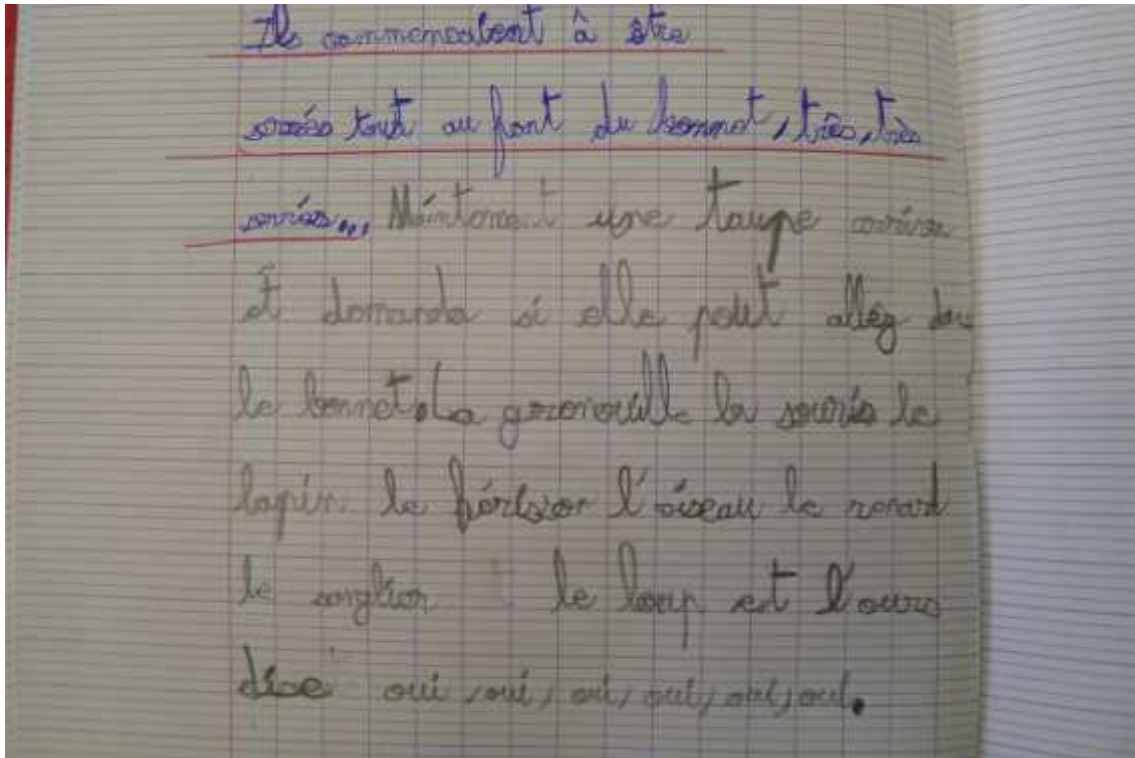 Ils commensaient à être
serrés tout au font du bonnet, très, très
serrés... Maintenant une taupe arriva
Et demanda si elle peut allég dans
le bonnet. La grenouille la souris le
lapin le hérisson l'oiseau le renard
le sanglier le loup est l'ours
dise oui, oui, oui, oui, oui, oui.